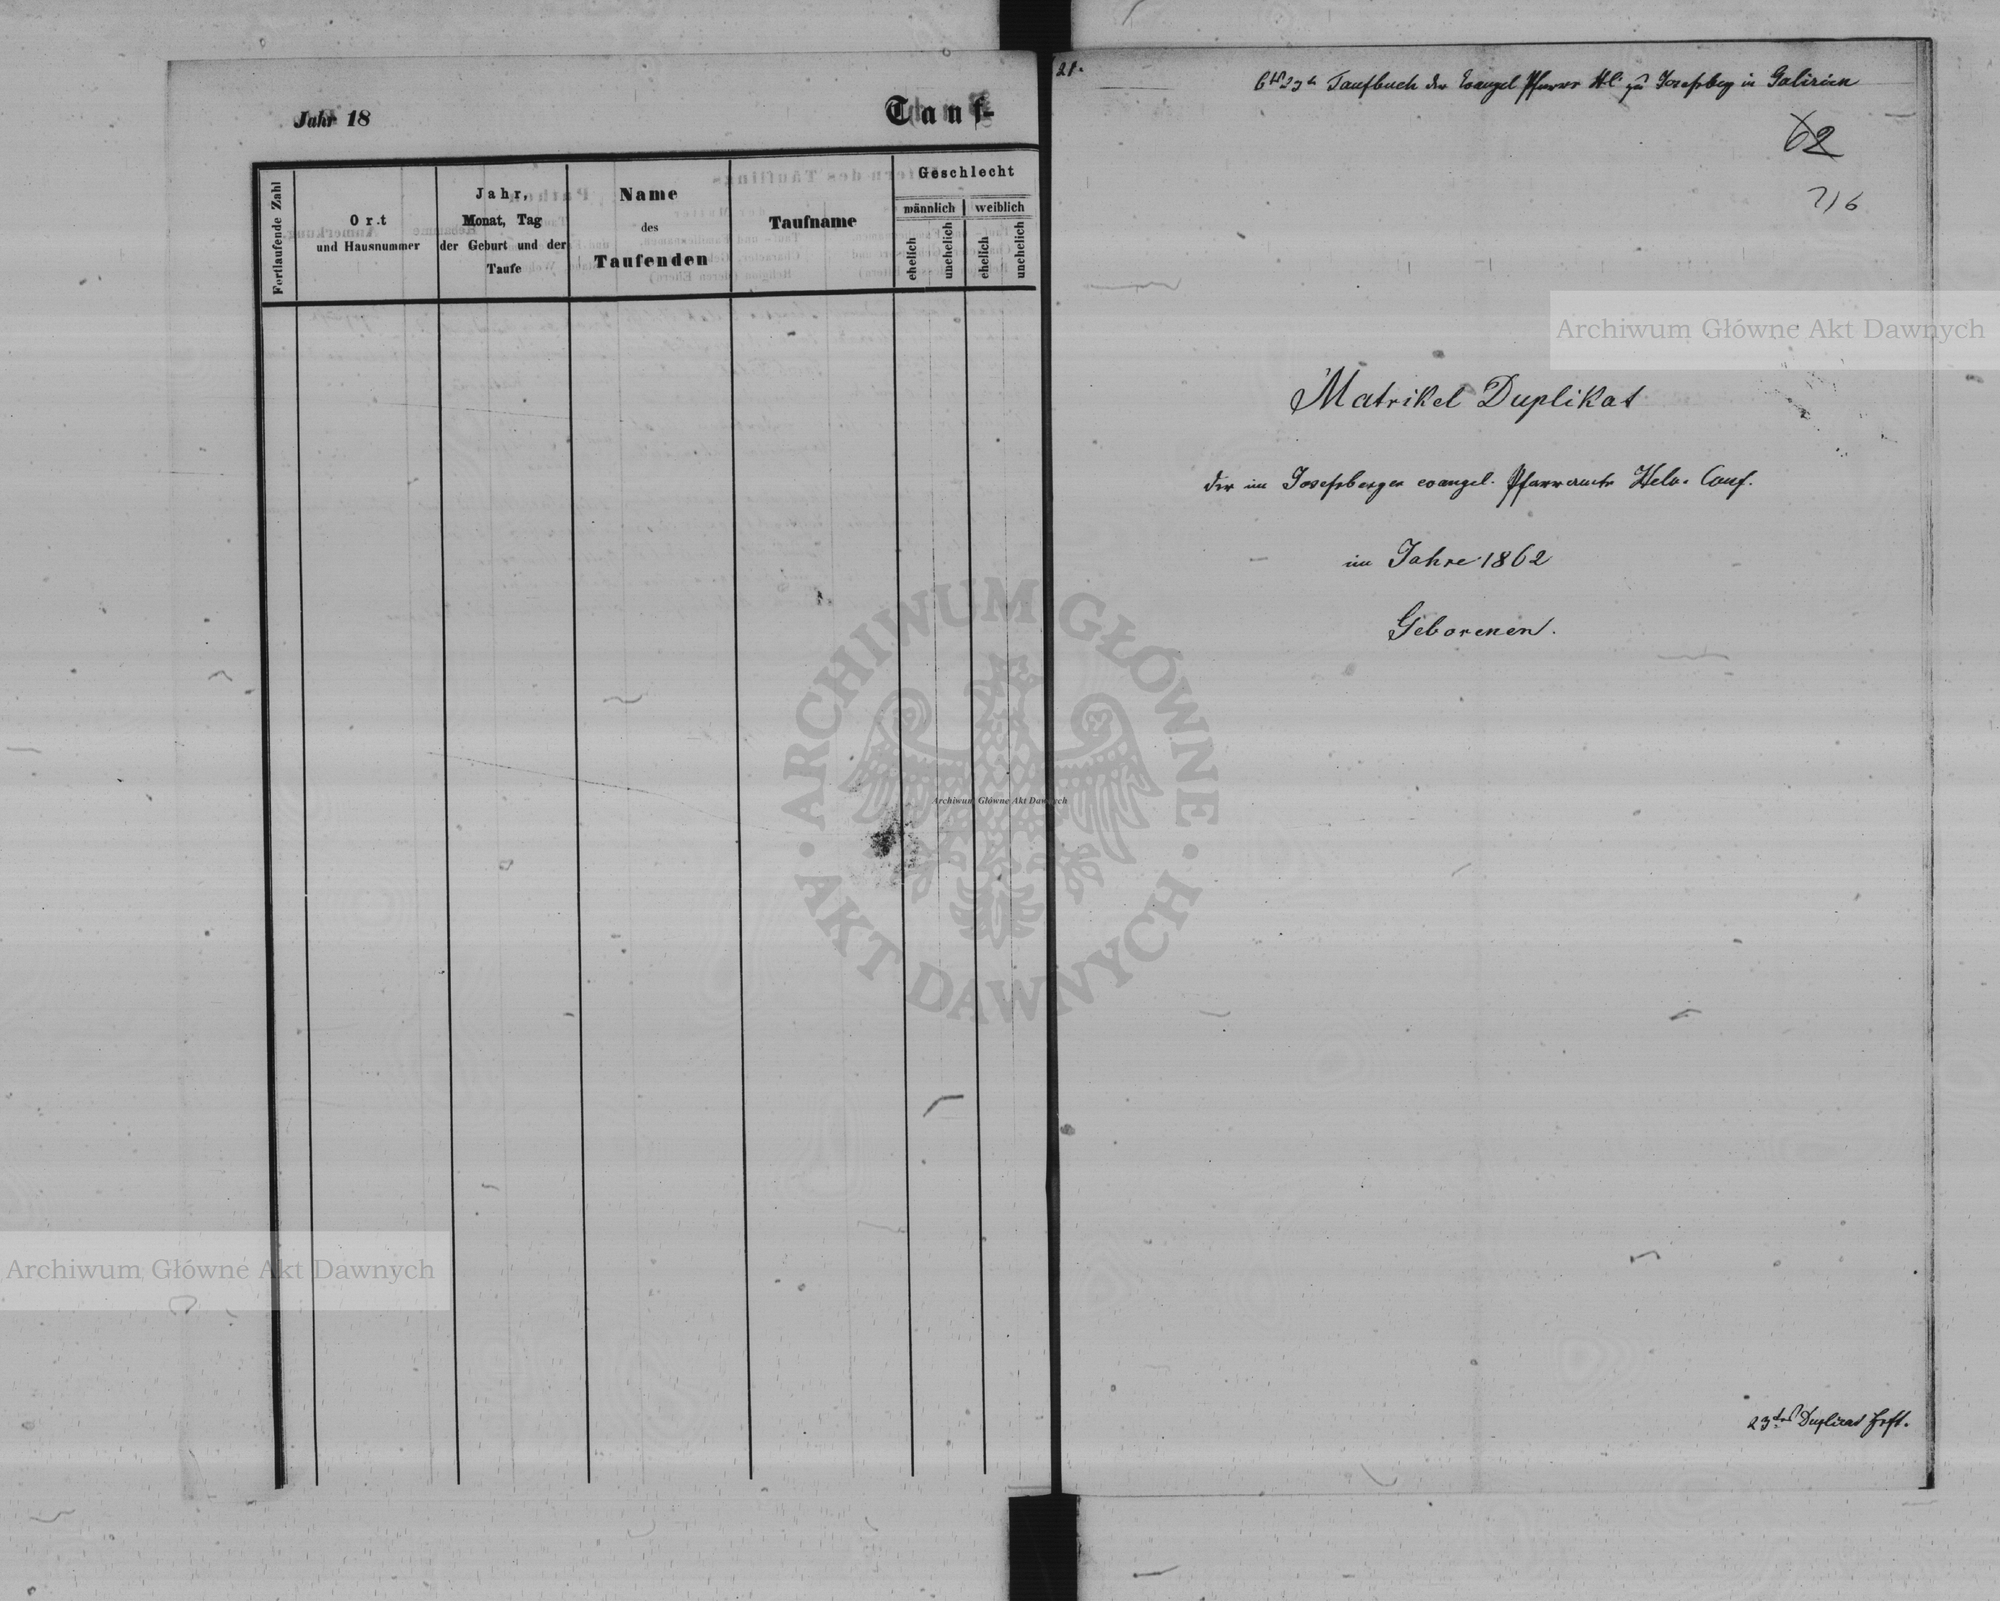 Jahr 18
Tauf-
Fortlaufende Zahl
Ort
und Hausnummer
Jahr,
Monat, Tag
der Geburt und der
Taufe
Name
des
Taufenden
Taufname
Geschlecht
männlich
weiblich
ehelich
unehelich
ehelich
unehelich
21.
Taufbuch der Evangel Pfarre H.C. zu Josefsberg in Galizien
62
716
Matrikel Duplikat
der im Josefsberger evangel. Pfarramte Helv. Conf.
im Jahre 1862
Geborenen.
23tes Duplicat Heft.
Archiwum Główne Akt Dawnych
ARCHIWUM GŁÓWNE AKT DAWNYCH
Archiwum Główne Akt Dawnych
Archiwum Główne Akt Dawnych